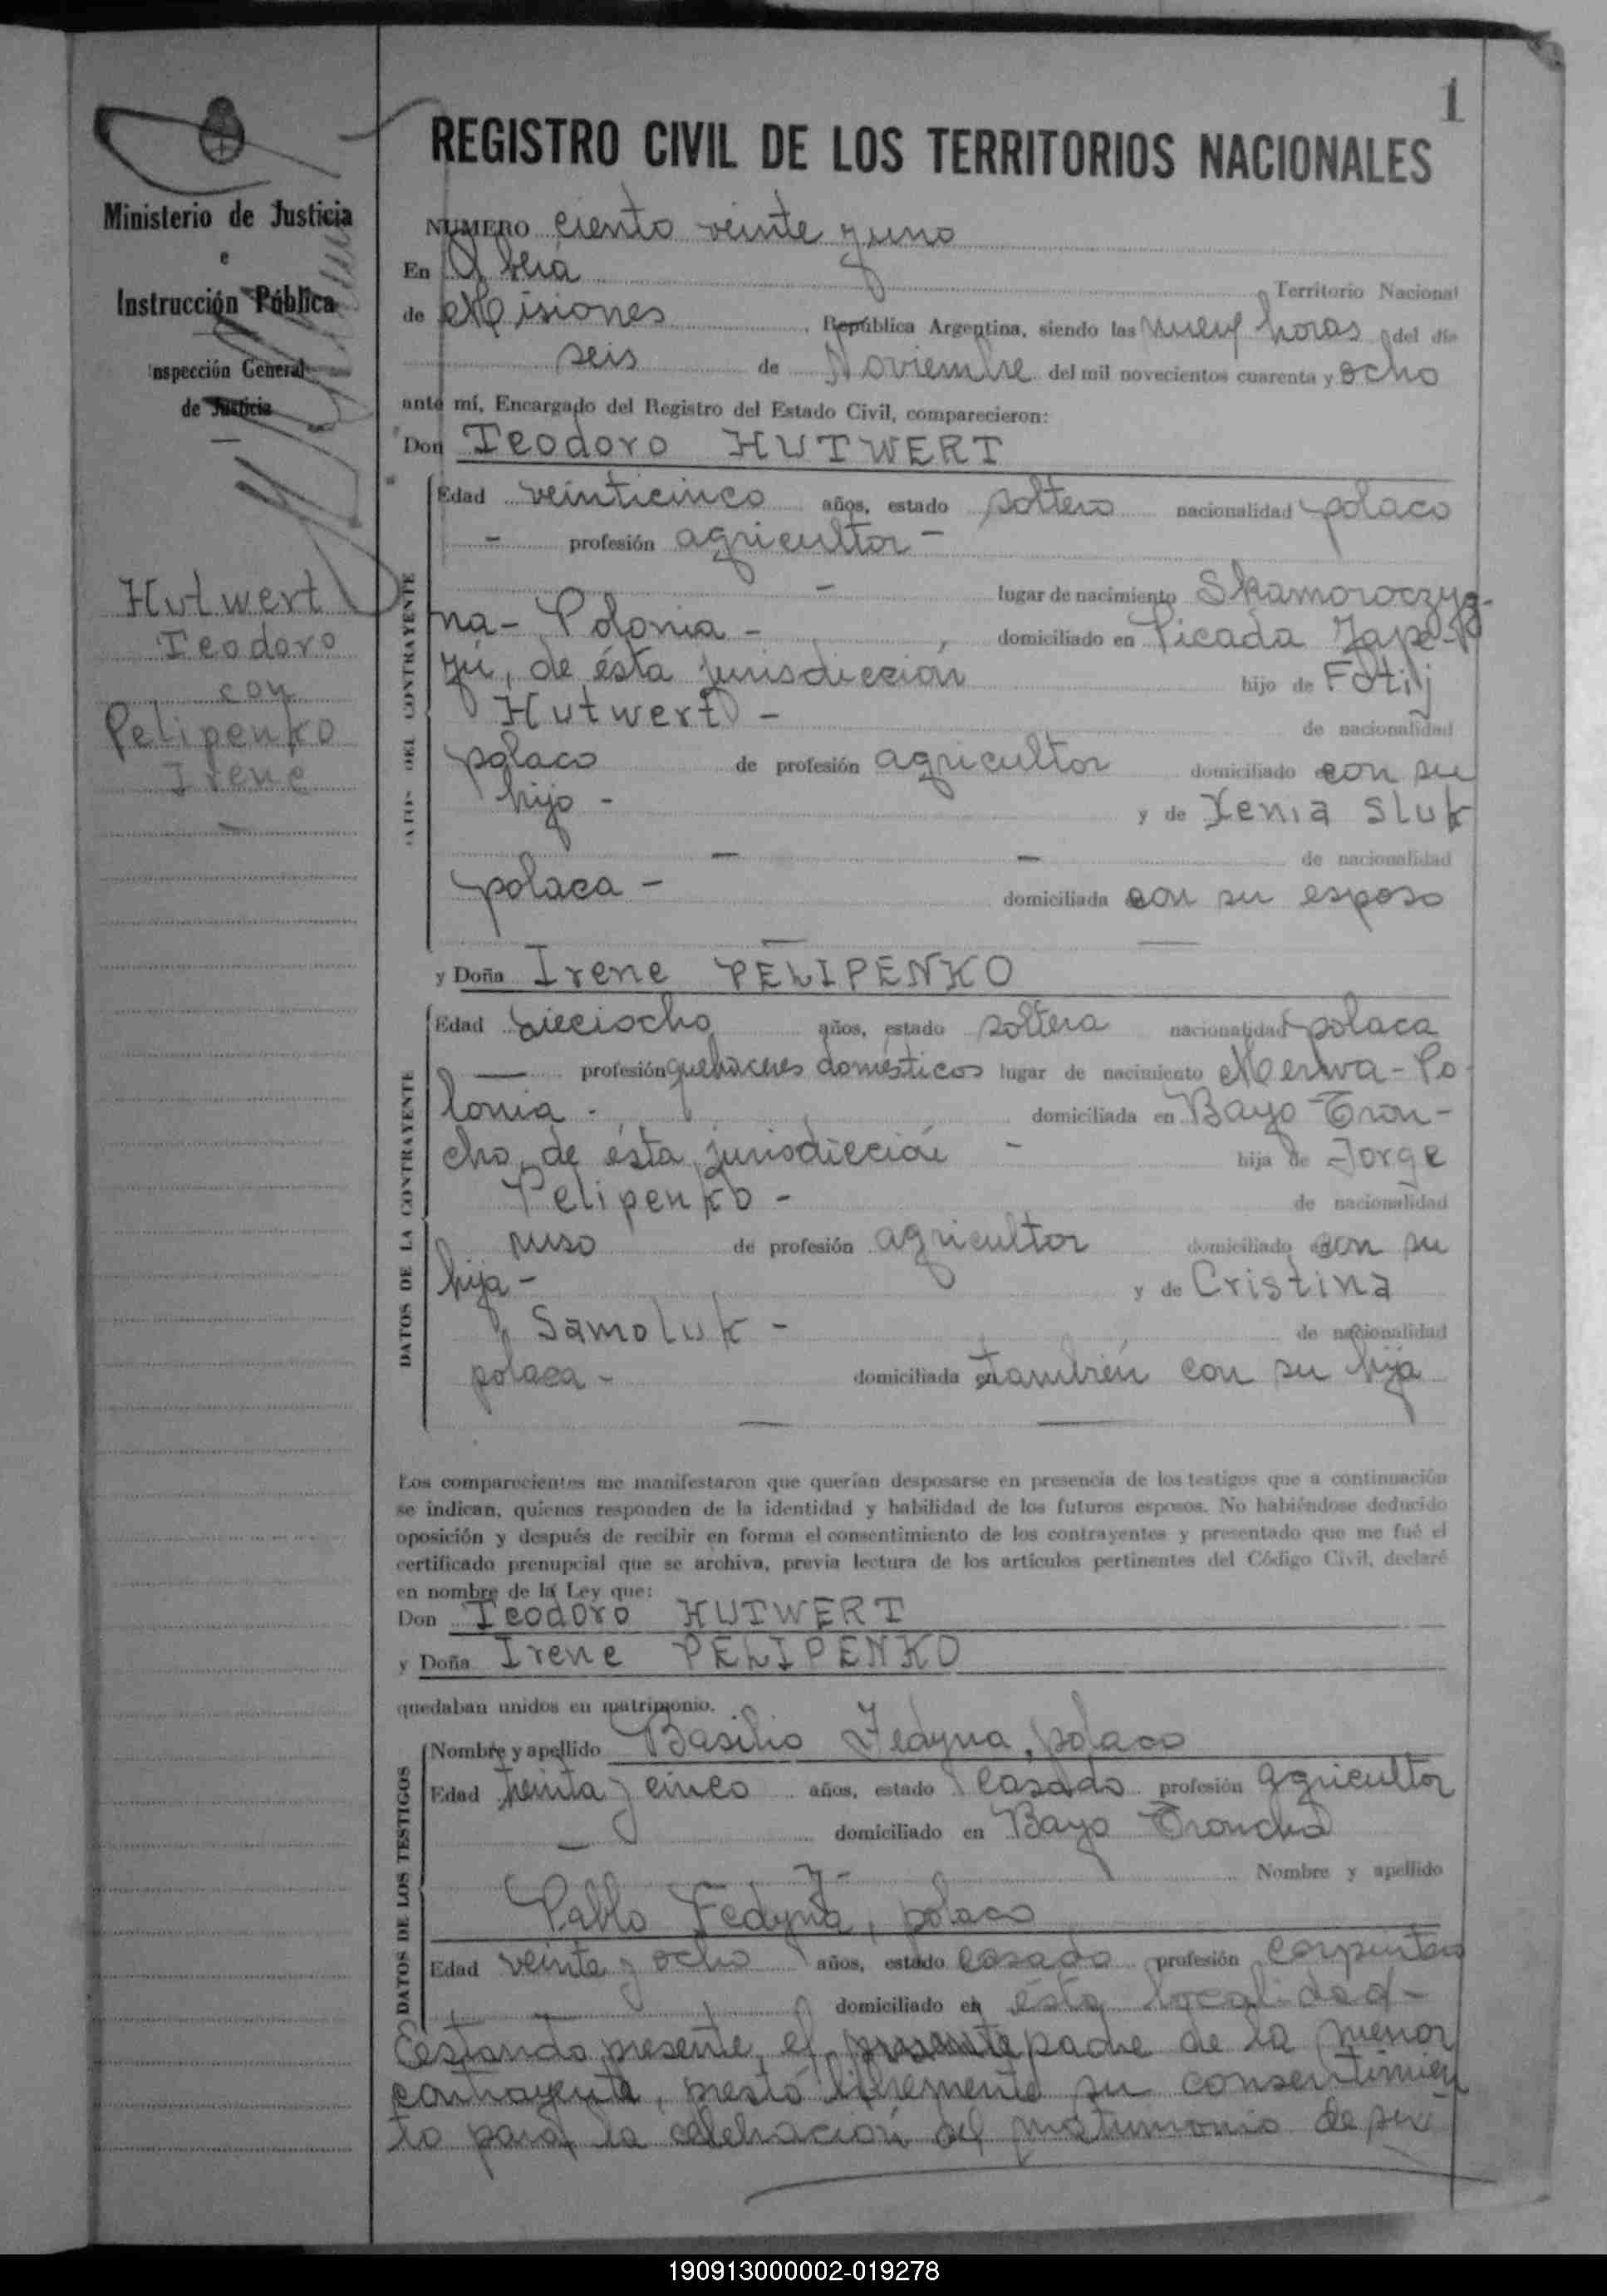 1
REGISTRO CIVIL DE LOS TERRITORIOS NACIONALES
Ministerio de Justicia
e
Instrucción Pública
Inspección General
de Justicia
NUMERO ciento veinte y uno
En Oberá Territorio Nacional
de Misiones República Argentina, siendo las nueve horas del día
seis de Noviembre del mil novecientos cuarenta y ocho
ante mí, Encargado del Registro del Estado Civil, comparecieron:
Don Teodoro HUTWERT
Hutwert
Teodoro
con
Pelipenko
Irene
DATOS DEL CONTRAYENTE
Edad veinticinco años, estado soltero nacionalidad polaco
- profesión agricultor -
- lugar de nacimiento Skamoroczyg-
na - Polonia - domiciliado en Picada Yape-
yú, de ésta jurisdicción hijo de Fotij
Hutwert - de nacionalidad
polaco de profesión agricultor domiciliado con su
hijo - y de Xenia Sluk
- - de nacionalidad
polaca - domiciliada con su esposo
y Doña Irene PELIPENKO
DATOS DE LA CONTRAYENTE
Edad dieciocho años, estado soltera nacionalidad polaca
- profesión quehaceres domésticos lugar de nacimiento Merwa - Po-
lonia - domiciliada en Bayo Tron-
cho, de ésta jurisdicción - hija de Jorge
Pelipenko - de nacionalidad
ruso de profesión agricultor domiciliado con su
hija - y de Cristina
Samoluk - de nacionalidad
polaca - domiciliada también con su hija
Los comparecientes me manifestaron que querían desposarse en presencia de los testigos que a continuación
se indican, quienes responden de la identidad y habilidad de los futuros esposos. No habiéndose deducido
oposición y después de recibir en forma el consentimiento de los contrayentes y presentado que me fué el
certificado prenupcial que se archiva, previa lectura de los artículos pertinentes del Código Civil, declaré
en nombre de la Ley que:
Don Teodoro HUTWERT
y Doña Irene PELIPENKO
quedaban unidos en matrimonio.
DATOS DE LOS TESTIGOS
Nombre y apellido Basilio Fedyna, polaco
Edad treinta y cinco años, estado casado profesión agricultor
- domiciliado en Bayo Troncho
y - Nombre y apellido
Pablo Fedyna, polaco
Edad veinte y ocho años, estado casado profesión carpintero
domiciliado en ésta localidad -
Estando presente, el padre de la menor
contrayente, prestó libremente su consentimien
to para la celebración del matrimonio de su
190913000002-019278